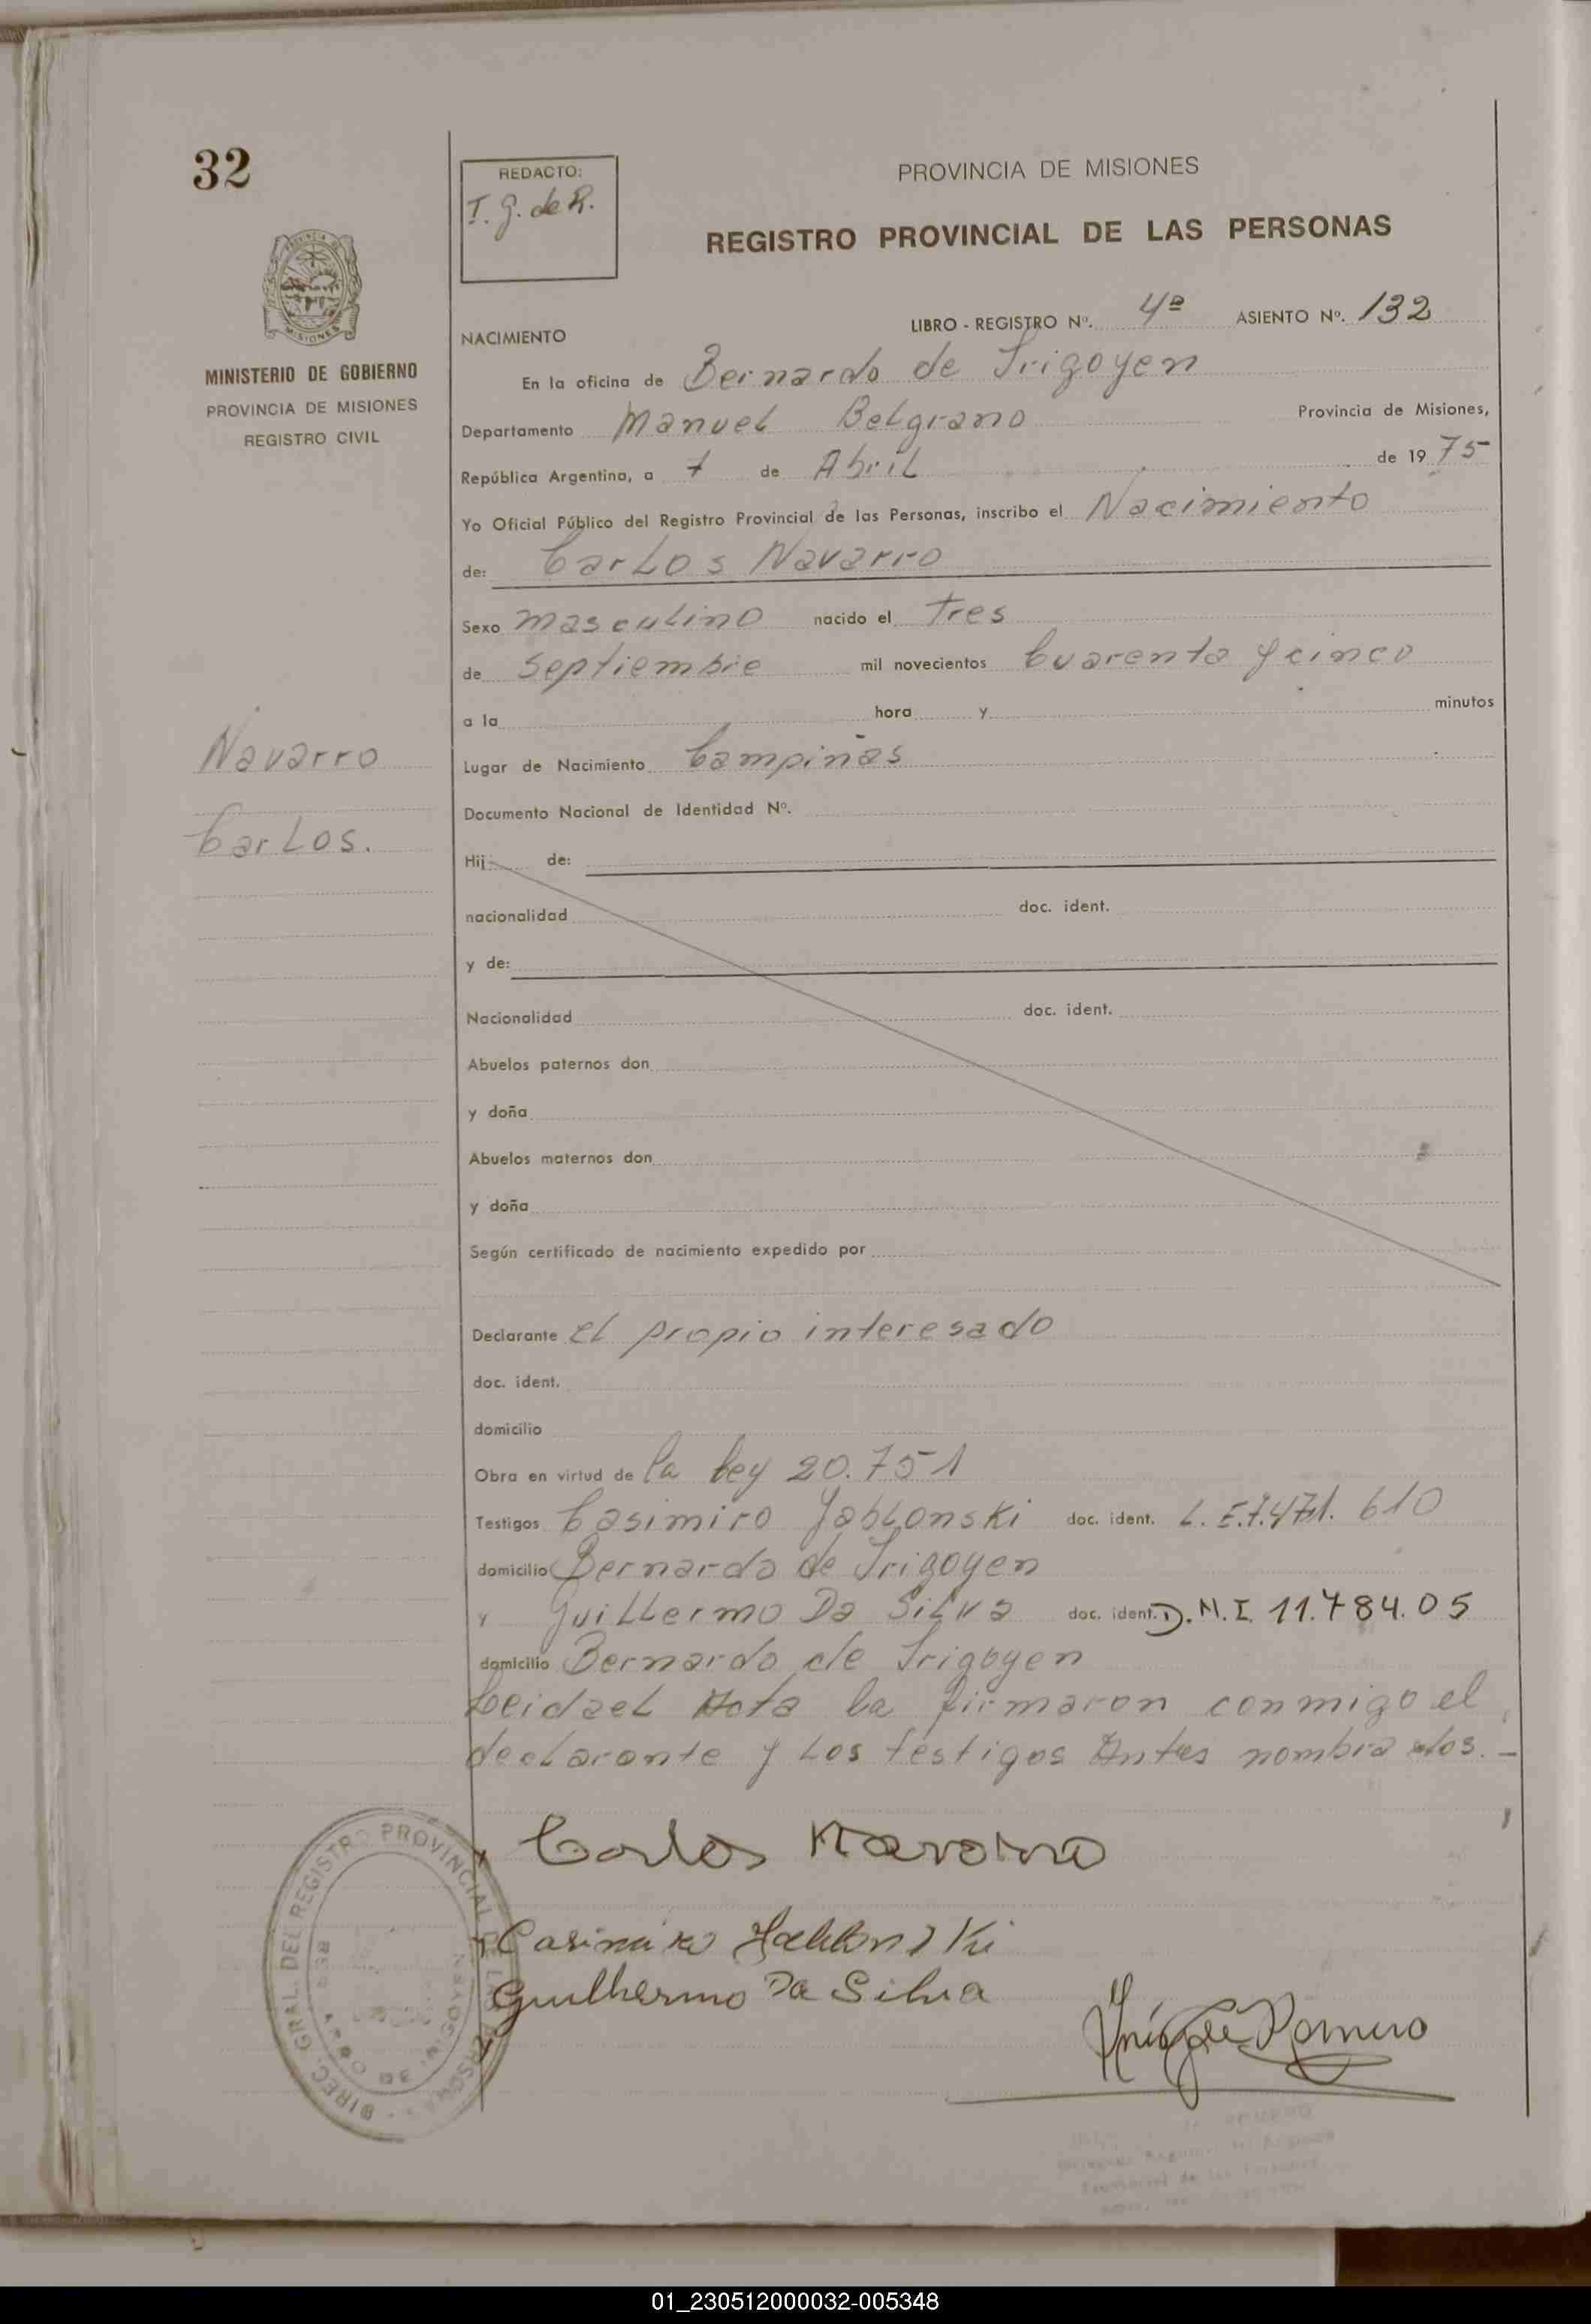 32
REDACTO:
I. G. de R.
PROVINCIA DE MISIONES
REGISTRO PROVINCIAL DE LAS PERSONAS
MINISTERIO DE GOBIERNO
PROVINCIA DE MISIONES
REGISTRO CIVIL
NACIMIENTO
LIBRO - REGISTRO Nº. 4º ASIENTO Nº. 132
En la oficina de Bernardo de Irigoyen
Departamento Manuel Belgrano Provincia de Misiones,
República Argentina, a 7 de Abril de 19 75
Yo Oficial Público del Registro Provincial de las Personas, inscribo el Nacimiento
de: Carlos Navarro
Sexo masculino nacido el tres
de Septiembre mil novecientos Cuarenta y cinco
a la hora y minutos
Navarro
Carlos.
Lugar de Nacimiento Campiñas
Documento Nacional de Identidad Nº.
Hij de:
nacionalidad doc. ident.
y de:
Nacionalidad doc. ident.
Abuelos paternos don
y doña
Abuelos maternos don
y doña
Según certificado de nacimiento expedido por
Declarante el propio interesado
doc. ident.
domicilio
Obra en virtud de la ley 20.751
Testigos Casimiro Jablonski doc. ident. L.E.7.471.610
domicilio Bernardo de Irigoyen
y Guillermo Da Silva doc. ident. D.N.I. 11.784.05
domicilio Bernardo de Irigoyen
Leida el Acta la firmaron conmigo el
declarante y los testigos Antes nombrados.-
Carlos Navarro
Casimiro Jablonski
Guilhermo Da Silva
Romero
DIREC. GRAL. DEL REGISTRO PROVINCIAL DE LAS PERSONAS
DE IRIGOYEN
01_230512000032-005348